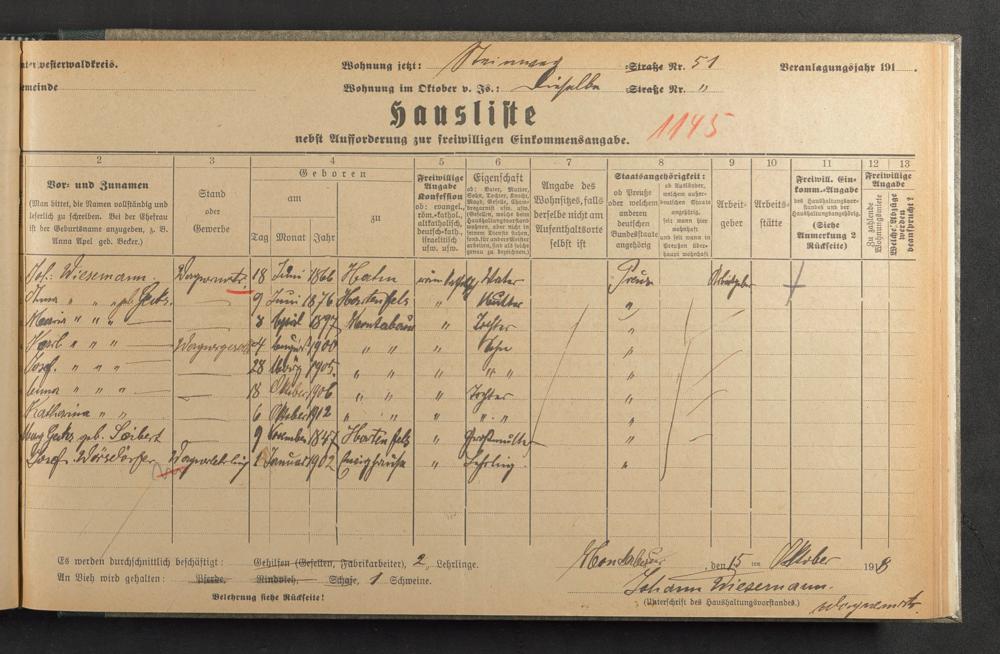 nterwesterwaldkreis.
Wohnung jetzt: Steinweg Straße Nr. 51
Veranlagungsjahr 191 .
emeinde
Wohnung im Oktober v. Js.: Dieselbe Straße Nr. "
Hausliste
nebst Aufforderung zur freiwilligen Einkommensangabe.
1145
2 3 4 5 6 7 8 9 10 11 12 13
Vor- und Zunamen
(Man bittet, die Namen vollständig und
leserlich zu schreiben. Bei der Ehefrau
ist der Geburtsname anzugeben, z. B.
Anna Apel geb. Becker.)
Stand
oder
Gewerbe
Geboren
am
Tag Monat Jahr
zu
Freiwillige
Angabe
Konfession
ob: evangel.,
röm.-kathol.,
altkatholisch,
deutsch-kath.,
israelitisch
usw. usw.
Eigenschaft
ob: Vater, Mutter,
Sohn, Tochter,
Angabe des
Wohnsitzes, falls
derselbe nicht am
Aufenthaltsorte
selbst ist
Staatsangehörigkeit:
ob Preuße
oder welchem
anderen
deutschen
Bundesstaate
angehörig
ob Ausländer,
welchem außer-
deutschen
Staate
angehörig,
seit wann hier
wohnhaft und
seit wann in
Preußen über-
haupt wohnhaft
Arbeit-
geber
Arbeits-
stätte
Freiwill. Ein-
komm.-Angabe
des Haushaltungsvor-
standes und der
Haushaltungsangehörig.
(Siehe
Anmerkung 2
Rückseite)
Freiwillige
Angabe
Zu zahlende
Wohnungsmiete
Welche Abzüge
werden
beansprucht?
Joh. Wiesemann 18 Juni 1866 Hahn Vater Preuße Arbeitgeber
Anna " " geb. 9 Juni 1876 Hartenfels " Mutter "
Maria " " 8 April 1897 Montabaur " Tochter "
Karl " " 4 August 1900 " " " Sohn "
Josef " " 28 März 1905 " " " " " "
Anna " " 18 Oktober 1906 " " " Tochter "
Katharina " " 6 Oktober 1912 " " " " " "
geb. Seibert 9 November 1847 Hartenfels " Großmutter "
Josef Wörsdörfer Wagnerlehrling 1 Januar 1902 " Lehrling "
Es werden durchschnittlich beschäftigt: Gehilfen (Gesellen, Fabrikarbeiter), 2 Lehrlinge.
An Vieh wird gehalten: Pferde, Rindvieh, Schafe, 1 Schweine.
Belehrung siehe Rückseite!
Montabaur, den 15 ten Oktober 1918
Johann Wiesemann
(Unterschrift des Haushaltungsvorstandes.)